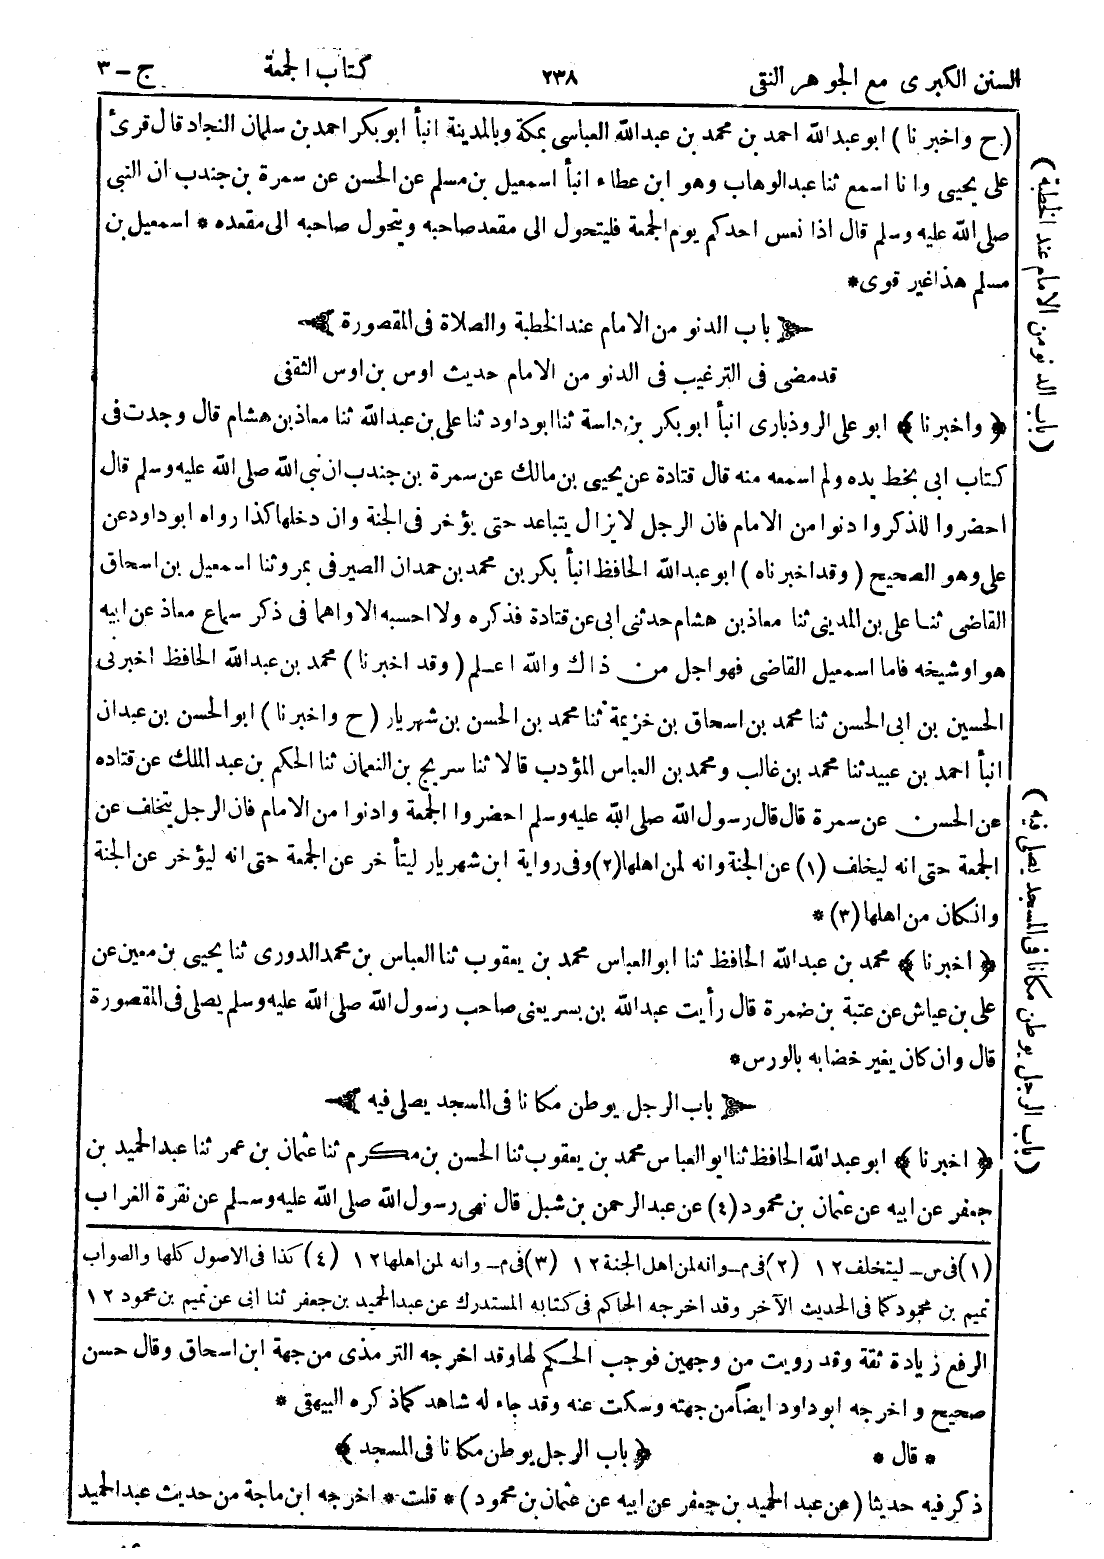 السنن الكبرى مع الجوهر النقى ٢٣٨ كتاب الجمعة ج - ٣
(ح واخبرنا) ابو عبد الله احمد بن محمد بن عبد الله العباسى بمكة وبالمدينة انبأ ابو بكر احمد بن سلمان النجاد قال قرئ
على يحيى وانا اسمع ثنا عبد الوهاب وهو ابن عطاء انبأ اسمعيل بن مسلم عن الحسن عن سمرة بن جندب ان النبى
صلى الله عليه وسلم قال اذا نعس احدكم يوم الجمعة فليتحول الى مقعد صاحبه ويتحول صاحبه الى مقعده * اسمعيل بن
مسلم هذا غير قوى *
باب الدنو من الامام عند الخطبة والصلاة فى المقصورة
قد مضى فى الترغيب فى الدنو من الامام حديث اوس بن اوس الثقفى
﴿واخبرنا﴾ ابو على الروذبارى انبأ ابو بكر بن داسة ثنا ابو داود ثنا على بن عبد الله ثنا معاذ بن هشام قال وجدت فى
كتاب ابى بخط يده ولم اسمعه منه قال قتادة عن يحيى بن مالك عن سمرة بن جندب ان نبى الله صلى الله عليه وسلم قال
احضروا للذكر وادنوا من الامام فان الرجل لا يزال يتباعد حتى يؤخر فى الجنة وان دخلها كذا رواه ابو داود عن
على وهو الصحيح (وقد اخبرناه) ابو عبد الله الحافظ انبأ بكر بن محمد بن حمدان الصيرفى بمرو ثنا اسمعيل بن اسحاق
القاضى ثنا على بن المدينى ثنا معاذ بن هشام حدثنى ابى عن قتادة فذكره ولا احسبه الا واهما فى ذكر سماع معاذ عن ابيه
هو او شيخه فاما اسمعيل القاضى فهو اجل من ذاك والله اعلم (وقد اخبرنا) محمد بن عبد الله الحافظ اخبرنى
الحسين بن ابى الحسن ثنا محمد بن اسحاق بن خزيمة ثنا محمد بن الحسن بن شهريار (ح واخبرنا) ابو الحسن بن عبدان
انبأ احمد بن عبيد ثنا محمد بن غالب ومحمد بن العباس المؤدب قالا ثنا سريج بن النعمان ثنا الحكم بن عبد الملك عن قتاده
عن الحسن عن سمرة قال قال رسول الله صلى الله عليه وسلم احضروا الجمعة وادنوا من الامام فان الرجل يتخلف عن
الجمعة حتى انه ليخلف (١) عن الجنة وانه لمن اهلها (٢) وفى رواية ابن شهريار ليتأخر عن الجمعة حتى انه ليؤخر عن الجنة
وانكان من اهلها (٣) *
﴿اخبرنا﴾ محمد بن عبد الله الحافظ ثنا ابو العباس محمد بن يعقوب ثنا العباس بن محمد الدورى ثنا يحيى بن معين عن
على بن عياش عن عتبة بن ضمرة قال رأيت عبد الله بن بسر يعنى صاحب رسول الله صلى الله عليه وسلم يصلى فى المقصورة
قال وان كان يغير خضابه بالورس *
باب الرجل يوطن مكانا فى المسجد يصلى فيه
﴿اخبرنا﴾ ابو عبد الله الحافظ ثنا ابو العباس محمد بن يعقوب ثنا الحسن بن مكرم ثنا عثمان بن عمر ثنا عبد الحميد بن
جعفر عن ابيه عن عثمان بن محمود (٤) عن عبد الرحمن بن شبل قال نهى رسول الله صلى الله عليه وسلم عن نقرة الغراب
(١) فى س - ليتخلف ١٢ (٢) فى م - وانه لمن اهل الجنة ١٢ (٣) فى م - وانه لمن اهلها ١٢ (٤) كذا فى الاصول كلها والصواب
تميم بن محمود كما فى الحديث الآخر وقد اخرجه الحاكم فى كتابه المستدرك عن عبد الحميد بن جعفر ثنا ابى عن تميم بن محمود ١٢
الرفع زيادة ثقة وقد رويت من وجهين فوجب الحكم لها وقد اخرجه الترمذى من جهة ابن اسحاق وقال حسن
صحيح واخرجه ابو داود ايضا من جهته وسكت عنه وقد جاء له شاهد كما ذكره البيهقى *
* قال * ﴿باب الرجل يوطن مكانا فى المسجد﴾
ذكر فيه حديثا (عن عبد الحميد بن جعفر عن ابيه عن عثمان بن محمود) * قلت * اخرجه ابن ماجة من حديث عبد الحميد
(باب الدنو من الامام عند الخطبة)
(باب الرجل يوطن مكانا فى المسجد يصلى فيه)